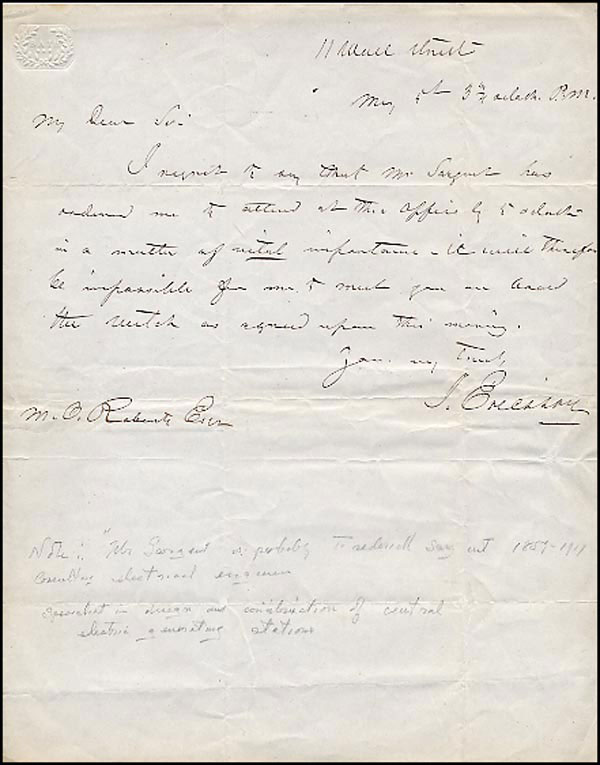 11 Wall Street
May 5th 3 3/4 oclock P.M.
My Dear Sir
I regret to say that Mr Sargent has
ordered me to attend at the Office by 5 oclock
in a matter of vital importance - it will therefore
be impossible for me to meet you on board
the as agreed upon this morning.
Yours very truly
J. Ericsson
M. O. Roberts Esqr
Note: "Mr Sargent" is probably Frederick Sargent 1859-1919
Consulting electrical engineer
Specialist in design and construction of central
electric generating stations